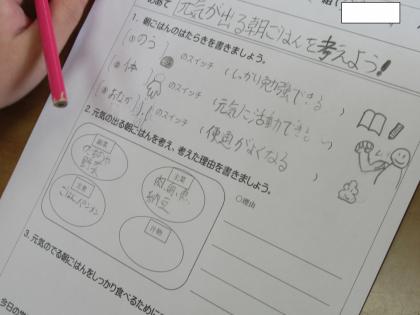 元気が出る朝ごはんを考えよう!
1. 朝ごはんのはたらきを書きましょう。
(1)のう のスイッチ (しっかり勉強できる )
(2)体 のスイッチ (元気に活動できる )
(3)おなか のスイッチ (便通がよくなる )
2. 元気の出る朝ごはんを考え、考えた理由を書きましょう。
副菜
野菜
主菜
肉 卵 魚
納豆
主食
ごはん パン メン
汁物
○理由
3. 元気のでる朝ごはんをしっかり食べるために
今日の学